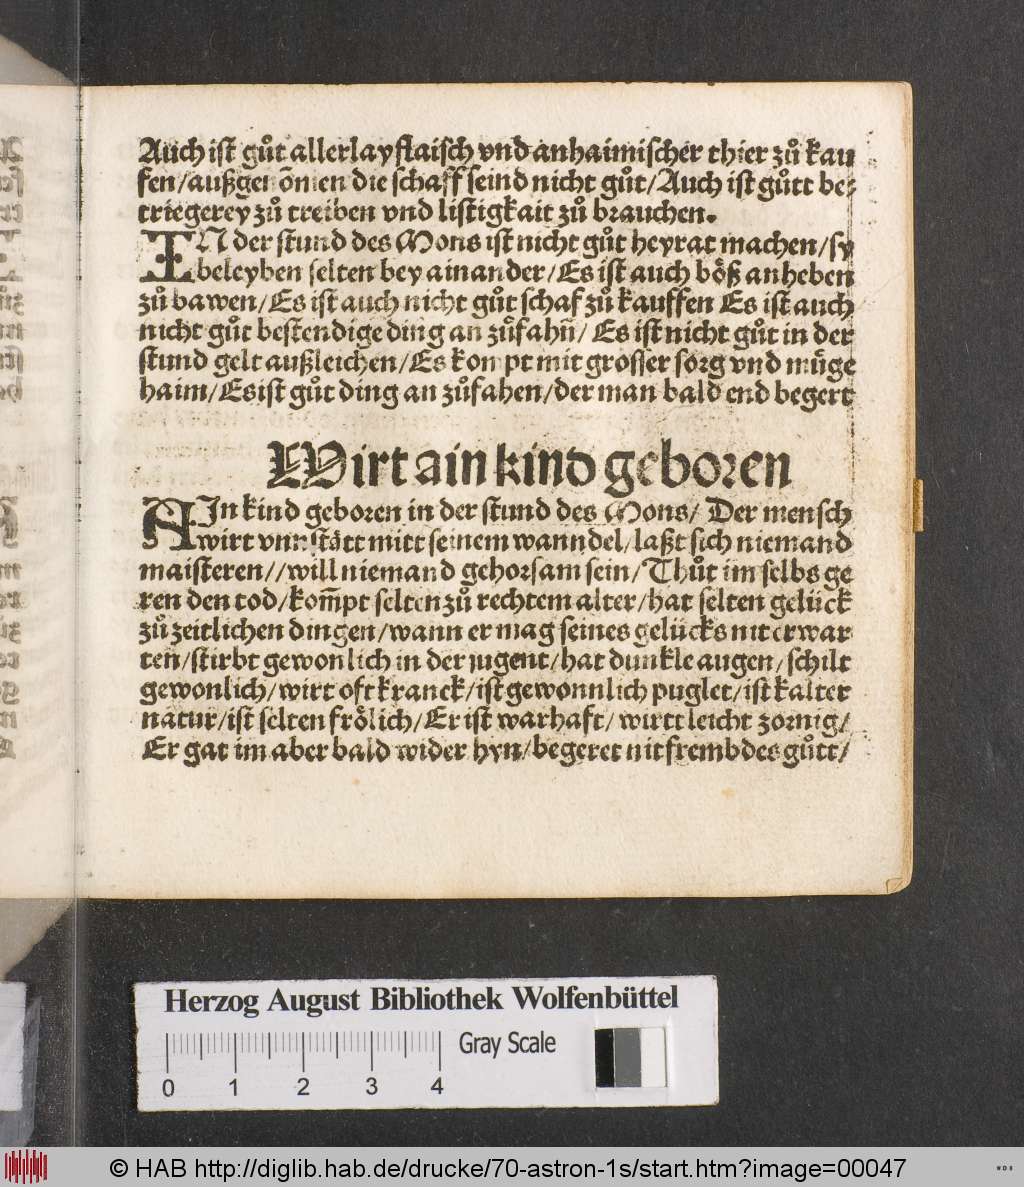 Auch ist gůt allerlay flaisch vnd anhaimischer thier zů kau
fen/außgenõmen die schaff seind nicht gůt/Auch ist gůtt be⸗
triegerey zů treiben vnd listigkait zů brauchen.
IN der stund des Mons ist nicht gůt heyrat machen/sy
beleyben selten bey ainander/Es ist auch bo̊ß anheben
zů bawen/Es ist auch nicht gůt schaf zů kauffen Es ist auch
nicht gůt bestendige ding an zůfahñ/ Es ist nicht gůt in der
stund gelt außleichen/Es kompt mit grosser sorg vnd mu̎ge
haim/Es ist gůt ding an zůfahen/der man bald end begert
Wirt ain kind geboren
AIn kind geboren in der stund des Mons/ Der mensch
wirt vnnstätt mitt seinem wanndel/laßt sich niemand
maisteren//will niemand gehorsam sein/Thůt im selbs ge
ren den tod/kom̃pt selten zů rechtem alter/hat selten gelück
zů zeitlichen dingen/wann er mag seines gelücks nit erwar
ten/stirbt gewonlich in der jugent/hat dunkle augen/schilt
gewonlich/wirt oft kranck/ist gewonnlich puglet/ist kalter
natur/ist selten frölich/Er ist warhaft/wirtt leicht zornig/
Er gat im aber bald wider hyn/begeret nit frembdes gůtt/
Herzog August Bibliothek Wolfenbüttel
Gray Scale
0 1 2 3 4
© HAB http://diglib.hab.de/drucke/70-astron-1s/start.htm?image=00047